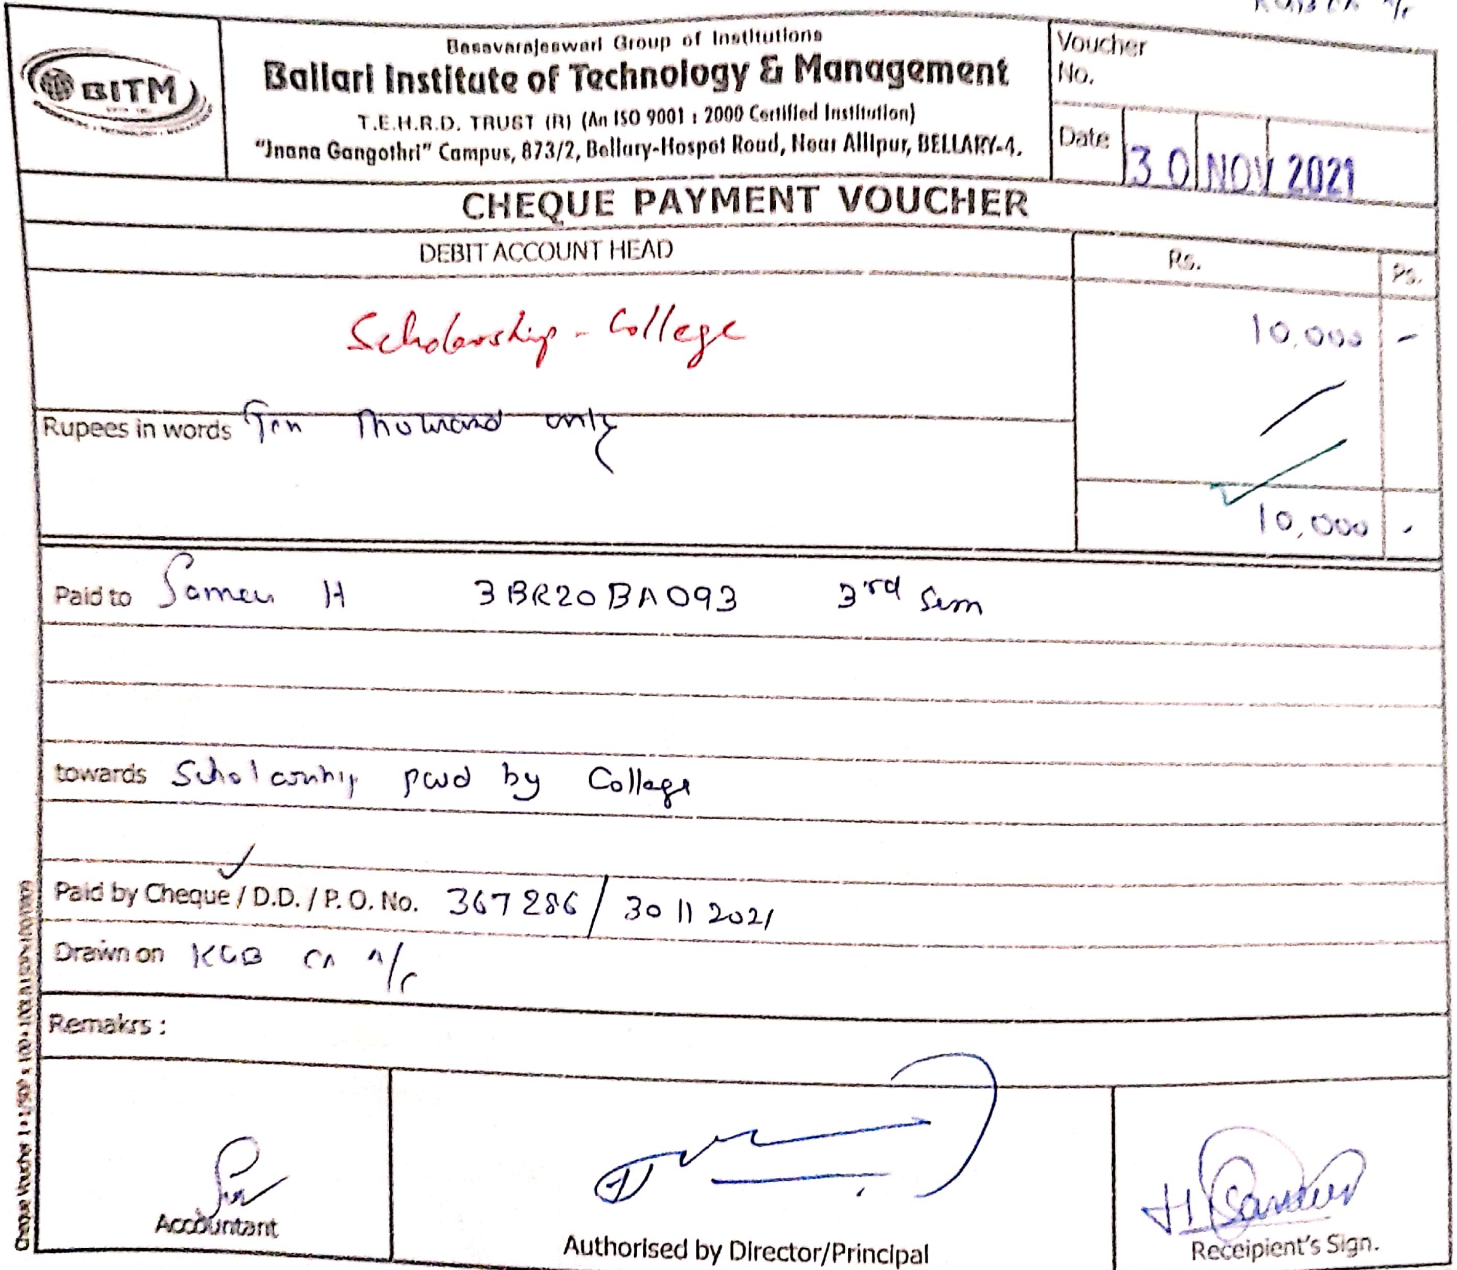 Basavarajeswari Group of Institutions
BITM
Ballari Institute of Technology & Management
T.E.H.R.D. TRUST (R) (An ISO 9001 : 2000 Certified Institution)
"Jnana Gangothri" Campus, 873/2, Bellary-Hospet Road, Near Allipur, BELLARY-4.
Voucher
No.
Date 30 NOV 2021
CHEQUE PAYMENT VOUCHER
DEBIT ACCOUNT HEAD Rs. Ps.
Scholarship - College 10,000 -
Rupees in words Ten Thousand only
10,000 -
Paid to Sameer H 3BR20BA093 3rd Sem
towards Scholarship paid by College
Paid by Cheque / D.D. / P. O. No. 367286 / 30 11 2021
Drawn on KGB CA A/c
Remakrs :
Accountant
Authorised by Director/Principal
Receipient's Sign.